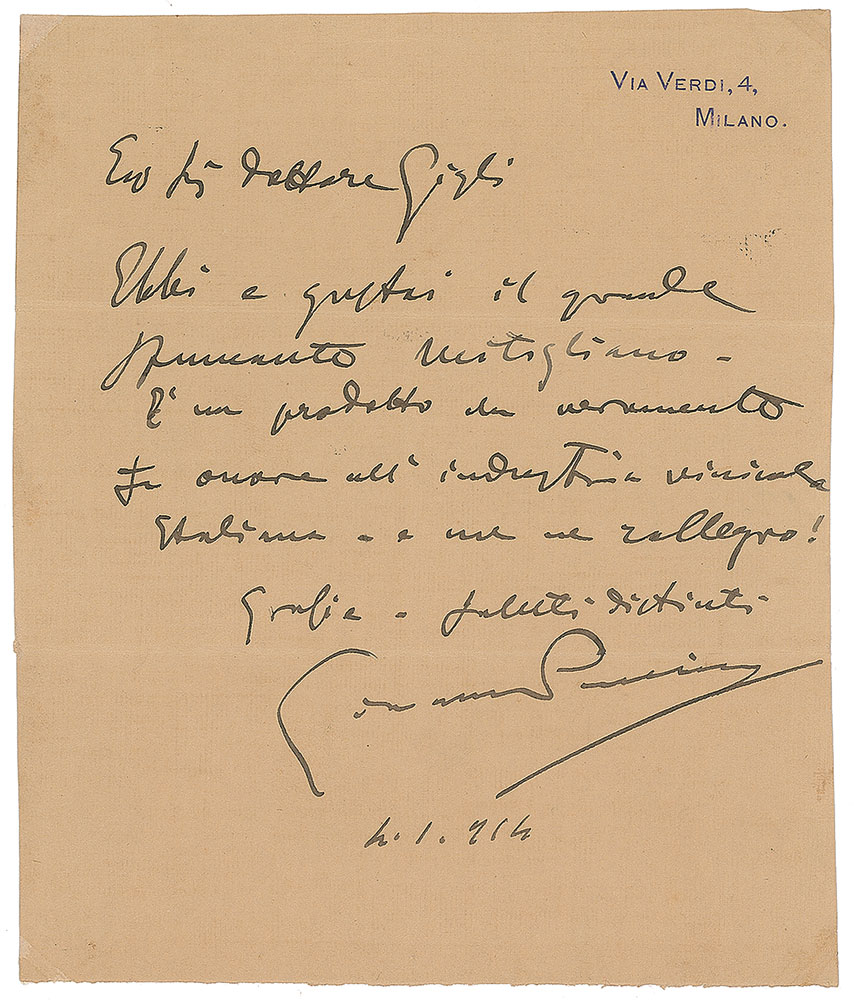 VIA VERDI, 4,
MILANO.
dottore Gigli
Ebbi e gustai il grande
spumante Mitigliano -
È un prodotto che veramente
fa onore all' industria vinicola
Italiana - e me ne rallegro!
Grazie - saluti distinti
Giacomo Puccini
4.1.914